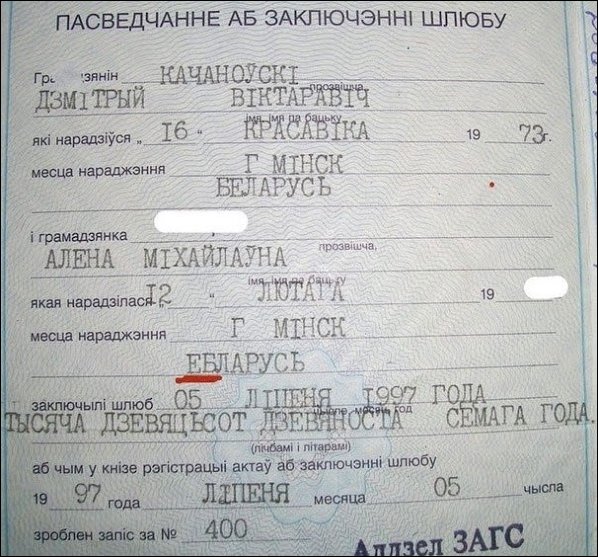 ПАСВЕДЧАННЕ АБ ЗАКЛЮЧЭННІ ШЛЮБУ
КАЧАНОЎСКІ
прозвішча,
ДЗМІТРЫЙ ВІКТАРАВІЧ
імя, імя па бацьку
які нарадзіўся „ I6 “ КРАСАВІКА 19 73г.
месца нараджэння Г МІНСК
БЕЛАРУСЬ
і грамадзянка
прозвішча,
АЛЕНА МІХАЙЛАЎНА
імя, імя па бацьку
якая нарадзілася „ I2 “ ЛЮТАГА 19
месца нараджэння Г МІНСК
ЕБЛАРУСЬ
заключылі шлюб 05 ЛІПЕНЯ I997 ГОДА
чысло, месяц, год
ТЫСЯЧА ДЗЕВЯЦЬСОТ ДЗЕВЯНОСТА СЕМАГА ГОДА.
(лічбамі і літарамі)
аб чым у кнізе рэгістрацыі актаў аб заключэнні шлюбу
19 97 года ЛІПЕНЯ месяца 05 чысла
зроблен запіс за № 400
Аддзел ЗАГС